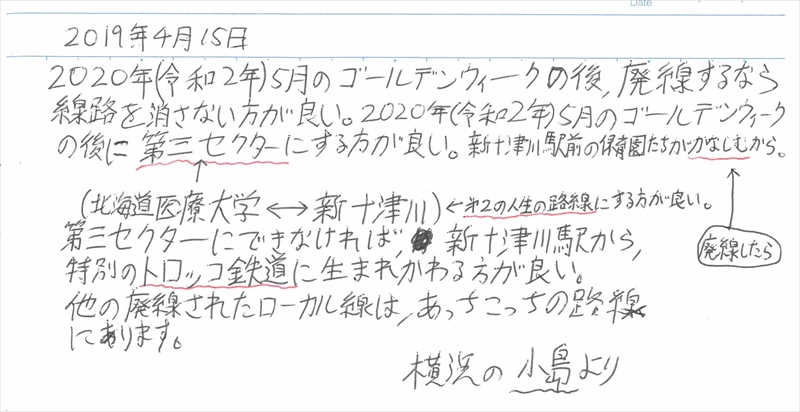 Date
2019年4月15日
2020年(令和2年)5月のゴールデンウィークの後,廃線するなら
線路を消さない方が良い。2020年(令和2年)5月のゴールデンウィーク
の後に第三セクターにする方が良い。新十津川駅前の保育園たちががなしむから。
(北海道医療大学↔新十津川)←第2の人生の路線にする方が良い。
廃線したら
第三セクターにできなければ,新十津川駅から,
特別のトロッコ鉄道に生まれかわる方が良い。
他の廃線されたローカル線は,あっちこっちの路線
にあります。
横浜の小島より